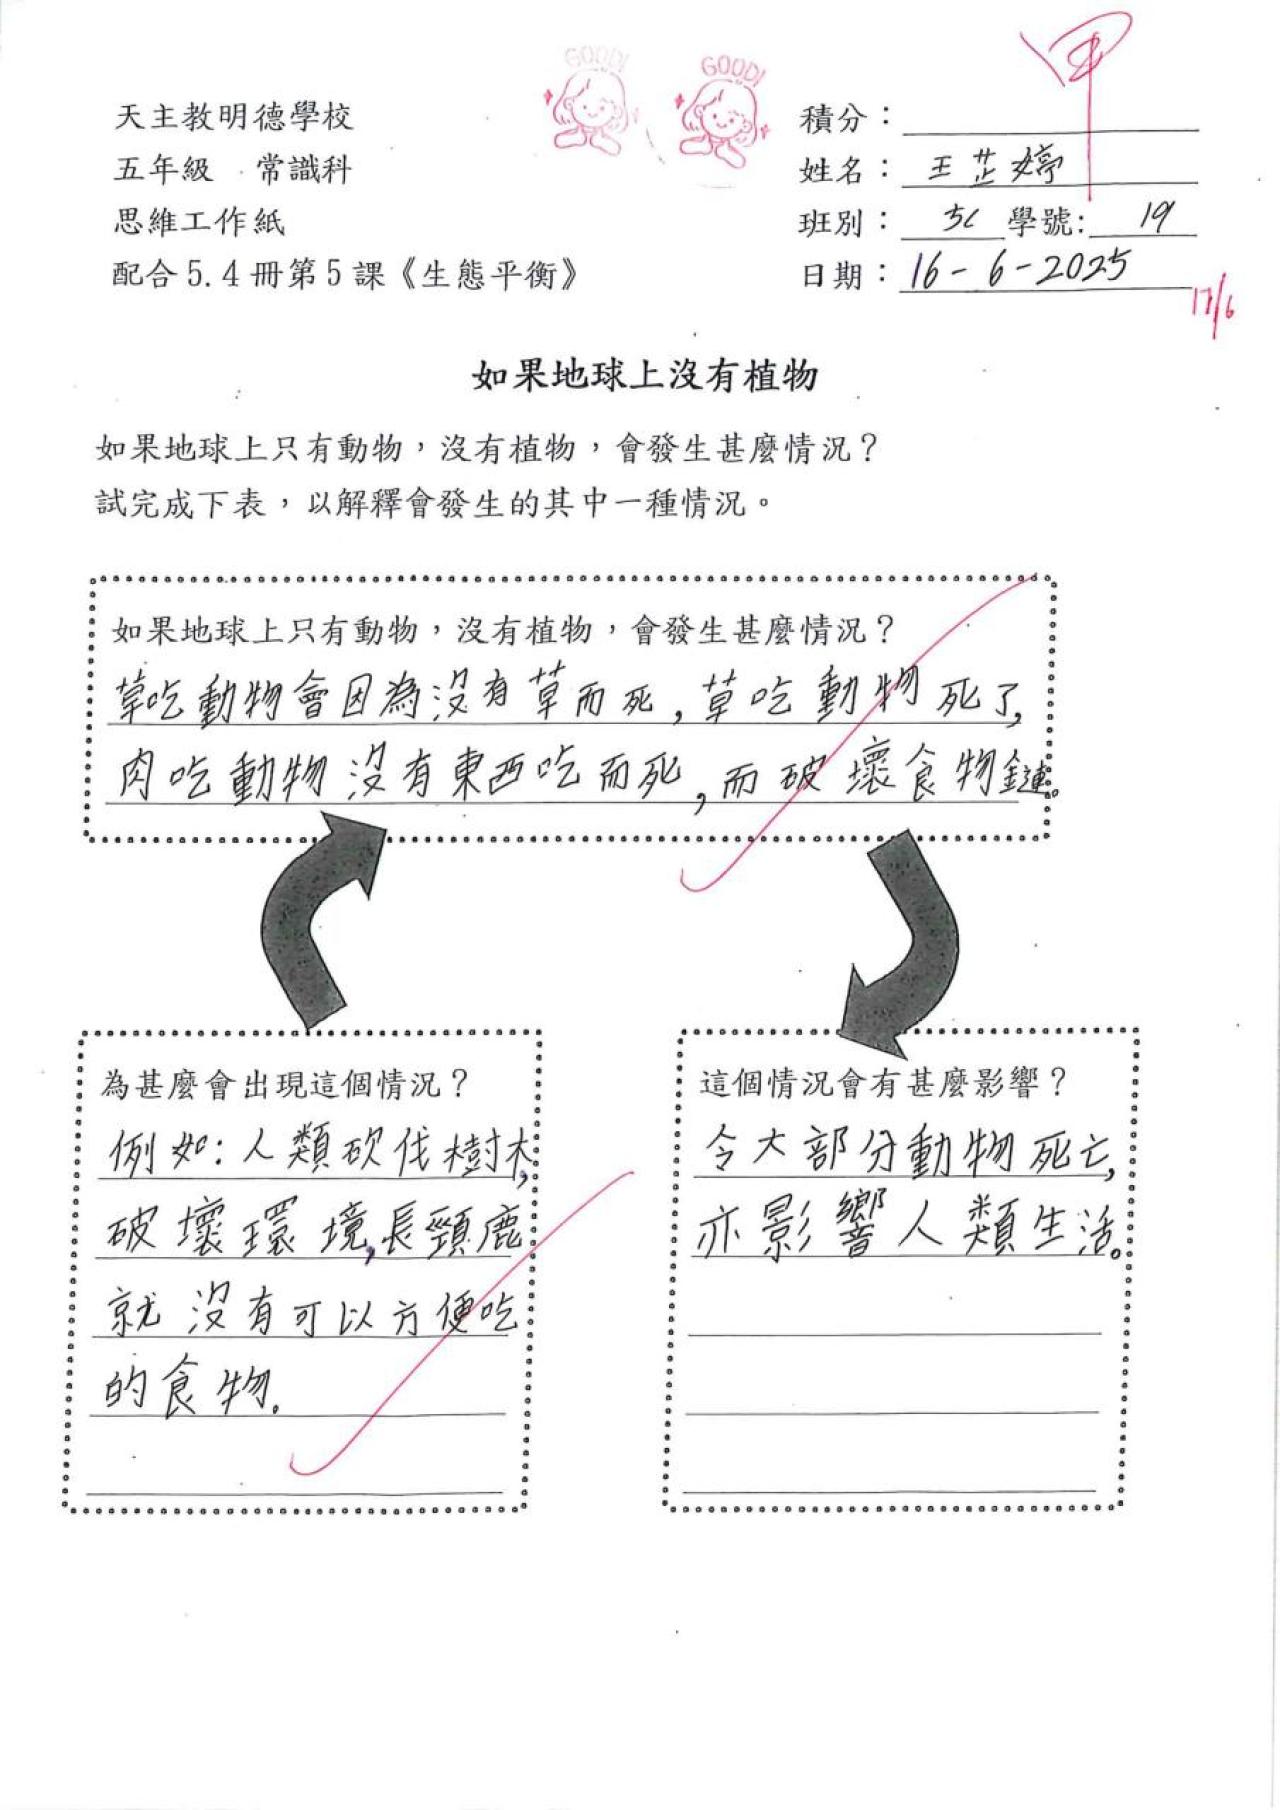 GOOD!
GOOD!
甲
天主教明德學校
積分：
五年級 常識科
姓名：王芷婷
思維工作紙
班別：5C 學號: 19
配合5.4冊第5課《生態平衡》
日期：16-6-2025
17/6
如果地球上沒有植物
如果地球上只有動物，沒有植物，會發生甚麼情況？
試完成下表，以解釋會發生的其中一種情況。
如果地球上只有動物，沒有植物，會發生甚麼情況？
草吃動物會因為沒有草而死，草吃動物死了，
肉吃動物沒有東西吃而死，而破壞食物鏈。
為甚麼會出現這個情況？
例如：人類砍伐樹木，
破壞環境，長頸鹿
就沒有可以方便吃
的食物。
這個情況會有甚麼影響？
令大部分動物死亡，
亦影響人類生活。